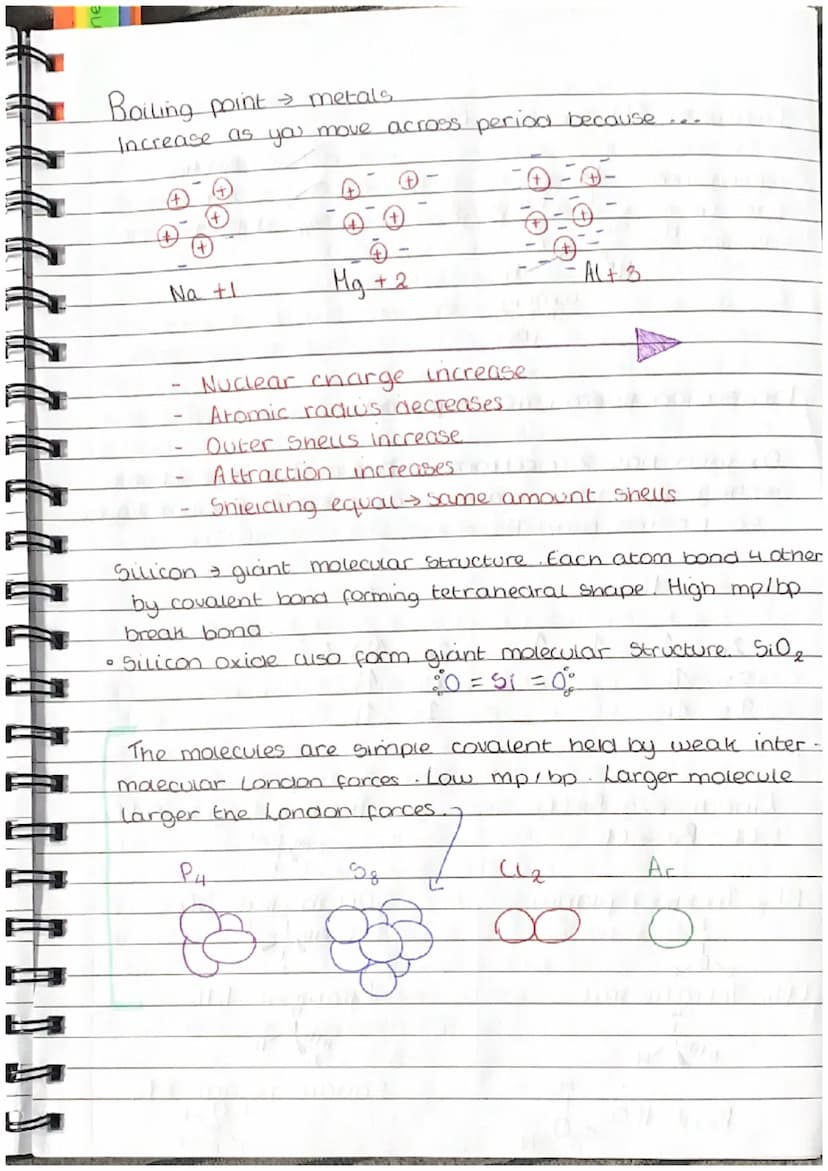 ne
Boiling point → metals
Increase as you move across period because ...
Na +1 Mg +2 Al+3
- Nuclear charge increase
- Atomic radius decreases
- Outer shells increase
- Attraction increases
- Shielding equal → same amount shells
Silicon → giant molecular structure. Each atom bond 4 other
by covalent bond forming tetrahedral shape. High mp/bp
break bond
• Silicon oxide also form giant molecular structure. SiO₂
O = Si = O
The molecules are simple covalent held by weak inter-
molecular London forces. Low mp/bp. Larger molecule
larger the London forces.
P₄ S₈ Cl₂ Ar